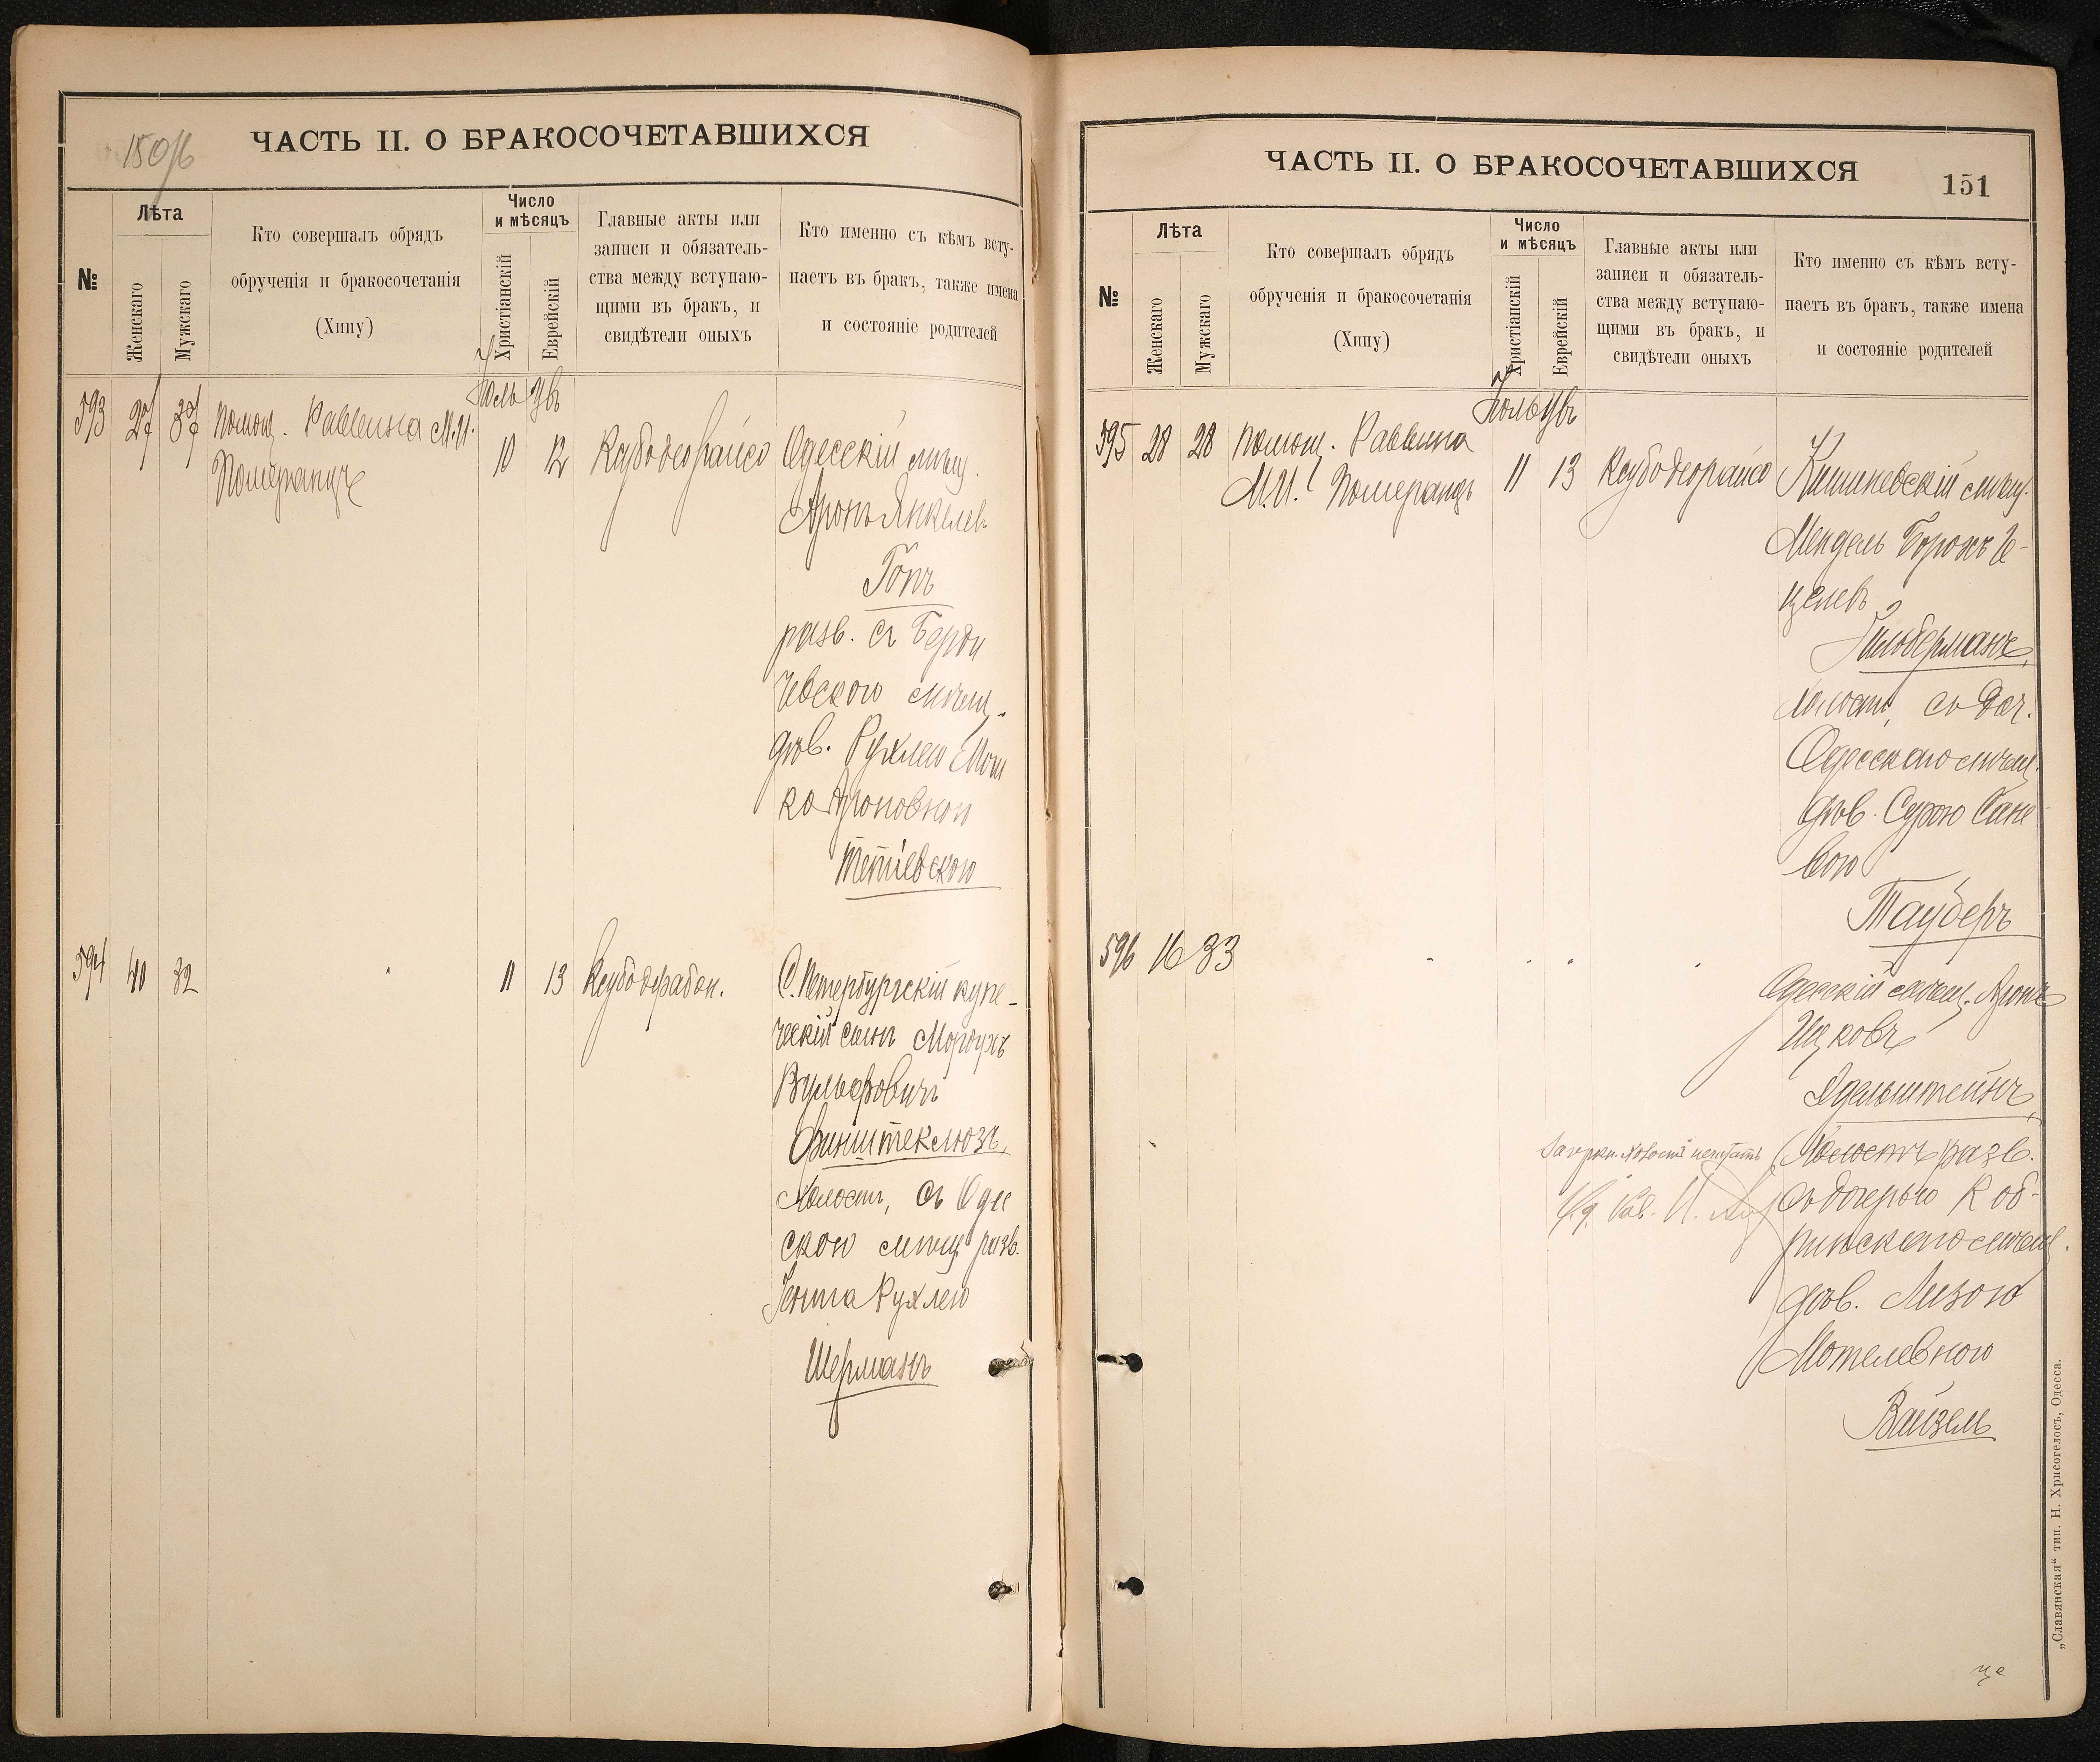 150/б
ЧАСТЬ II. О БРАКОСОЧЕТАВШИХСЯ
№
Лѣта
Женскаго
Мужскаго
Кто совершалъ обрядъ
обрученія и бракосочетанія
(Хипу)
Число
и мѣсяцъ
Христіанскій
Еврейскій
Главные акты или
записи и обязатель-
ства между вступаю-
щими въ бракъ, и
свидѣтели оныхъ
Кто именно съ кѣмъ всту-
паетъ въ бракъ, также имена
и состояніе родителей
593
27
37
Помощ. Раввина М.И.
Померанцъ
Іюль
10
12
Ксубодеорайсо
Одесскій мѣщ.
Аронъ Янкелев
Гопъ
разв. съ Берди
чевского мѣщ.
дѣв. Рухлею Мош
ко Ароновною
Тетіевскою
594
40
32
11
13
С.Петербургскій купе-
ческій сынъ Мордухъ
Вульфовичъ
Финштеклюзъ,
Холостъ, съ Одес
скою мѣщ. разв.
Рухлею
Шерманъ
ЧАСТЬ II. О БРАКОСОЧЕТАВШИХСЯ
151
№
Лѣта
Женскаго
Мужскаго
Кто совершалъ обрядъ
обрученія и бракосочетанія
(Хипу)
Число
и мѣсяцъ
Христіанскій
Еврейскій
Главные акты или
записи и обязатель-
ства между вступаю-
щими въ бракъ, и
свидѣтели оныхъ
Кто именно съ кѣмъ всту-
паетъ въ бракъ, также имена
и состояніе родителей
595
28
28
Помощ. Раввина
М.И. Померанцъ
Іюль
11
13
Ксубодеорайсо
Кишиневскій мѣщ.
Мендель Борохъ Ге-
целевъ
Гильберманъ,
Холостъ, съ доч.
Одесскаго мѣщ.
дѣв. Сурою Сане
вою
Тауберъ
596
16
33
Одесскій мѣщ. Аронъ
Ицковъ
Эдельштейнъ,
Холостъ разв.
съ дочерью Коб-
ринскаго мѣщ.
дѣв. Лизою
Мотелевною
Вайзель
„Славянская“ тип. Н. Хрисогелосъ, Одесса.